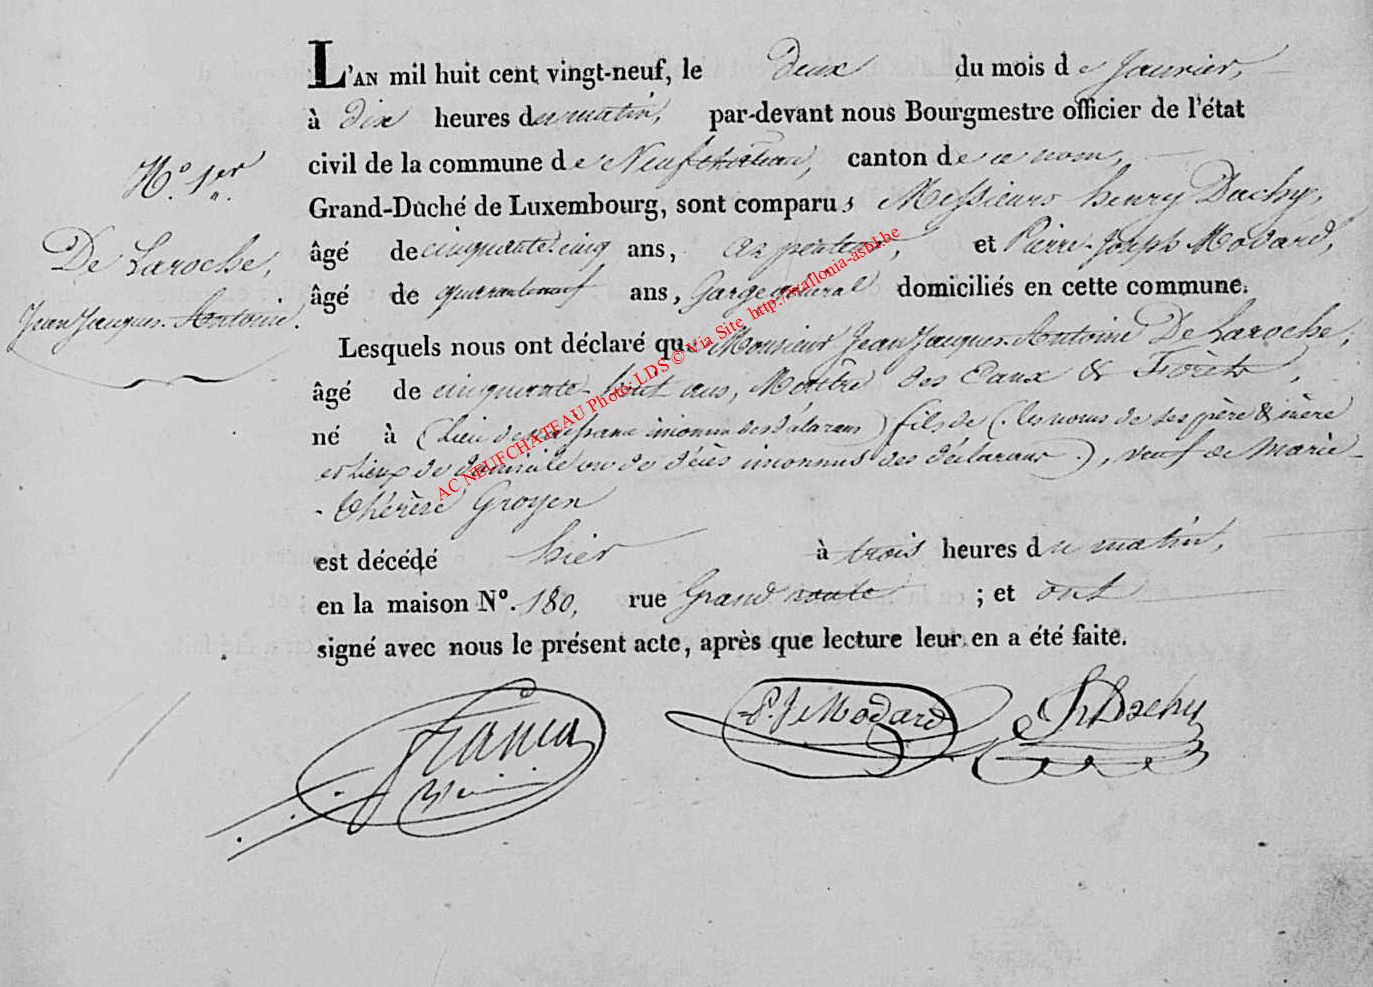 L'AN mil huit cent vingt-neuf, le deux du mois de Janvier,
à dix heures du matin, par-devant nous Bourgmestre officier de l'état
civil de la commune de Neufchateau, canton de ce nom,
Grand-Duché de Luxembourg, sont comparus Messieurs henry Dachy,
âgé de cinquante-cinq ans, et Pierre-Joseph Modard,
âgé de quaranteneuf ans, Garge général domiciliés en cette commune.
Lesquels nous ont déclaré que Monsieur Jean Jacques-Antoine De Laroche,
âgé de cinquante-huit ans, des Eaux & Forêts,
né à (Lieu de inconnu des déclarans) fils de (les noms de ses père & mère
et lieux de domicile ou de décès inconnus des déclarans), veuf de Marie-
-Thérèse Groyen
est décédé hier à trois heures du matin,
en la maison N°. 180, rue Grand route ; et ont
signé avec nous le présent acte, après que lecture leur en a été faite.
N.° 1.er
De Laroche,
Jean Jacques-Antoine.
P. J Modard
Dachy
AC NEUFCHATEAU Photo: LDS © Via Site http://wallonia-asbl.be